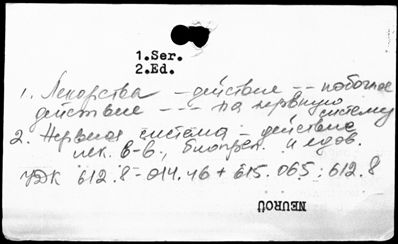 1.Ser.
2.Ed.
1. Лекарства - действие -- побочное
действие --- на нервную систему
2. Нервная система - действие
лек. в-в., биопреп. и ядов.
УДК 612.8-014.46 + 615.065 : 612.8
NEUROÜ